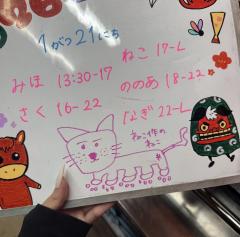 1がつ21にち
みほ 13:30-17
さく 16-22
ねこ 17-L
ののあ 18-22
なぎ 22-L
ねこ作の
ねこ